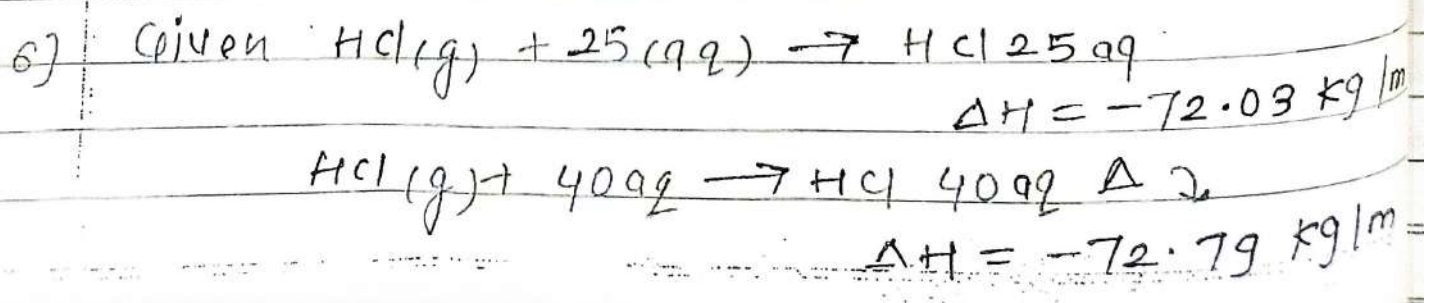 6] Given HCl(g) + 25(aq) → HCl 25 aq
ΔH = -72.03 kg/m
HCl(g) + 40aq → HCl 40aq Δ
ΔH = -72.79 kg/m